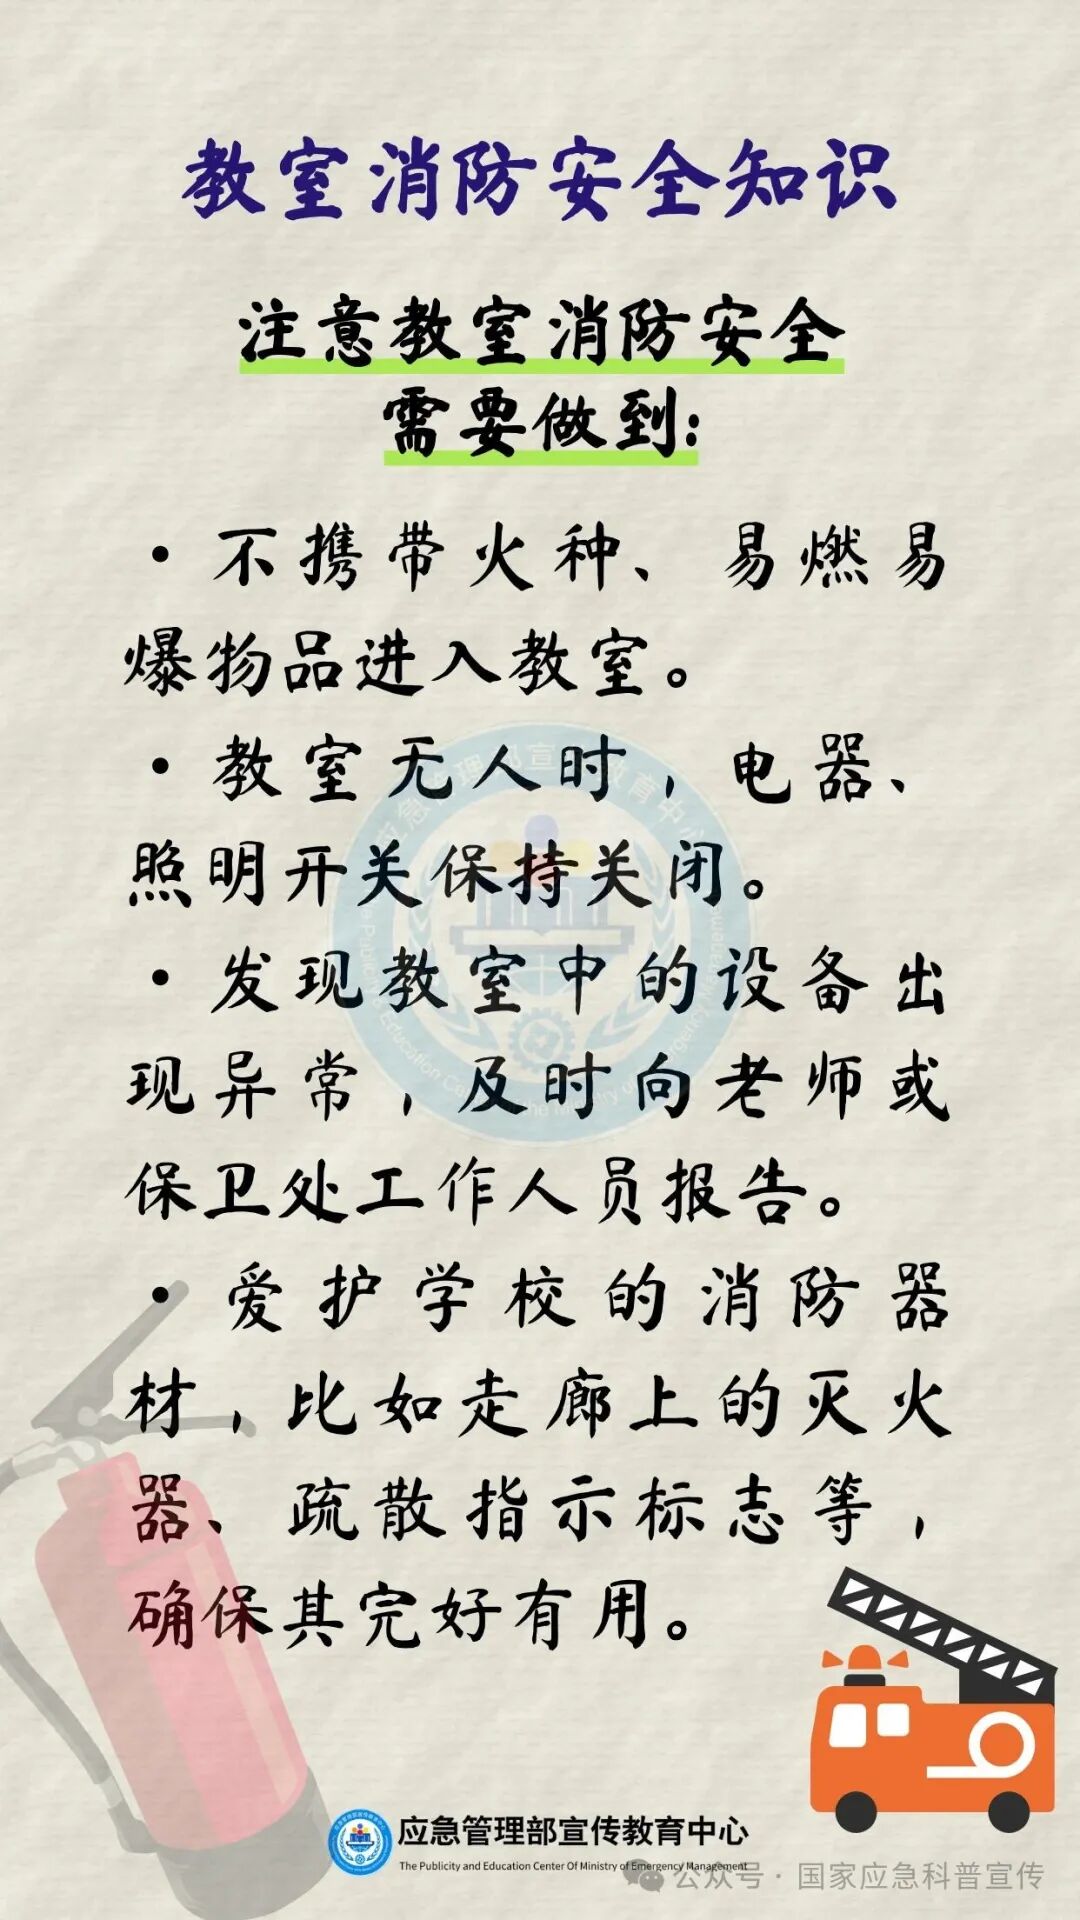 教室消防安全知识
注意教室消防安全
需要做到:
·不携带火种、易燃易
爆物品进入教室。
·教室无人时，电器、
照明开关保持关闭。
·发现教室中的设备出
现异常，及时向老师或
保卫处工作人员报告。
·爱护学校的消防器
材，比如走廊上的灭火
器、疏散指示标志等，
确保其完好有用。
应急管理部宣传教育中心
The Publicity and Education Center Of Ministry of Emergency Management
公众号·国家应急科普宣传